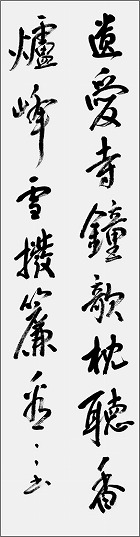 遺愛寺鐘欹枕聽香
爐峰雪撥簾看